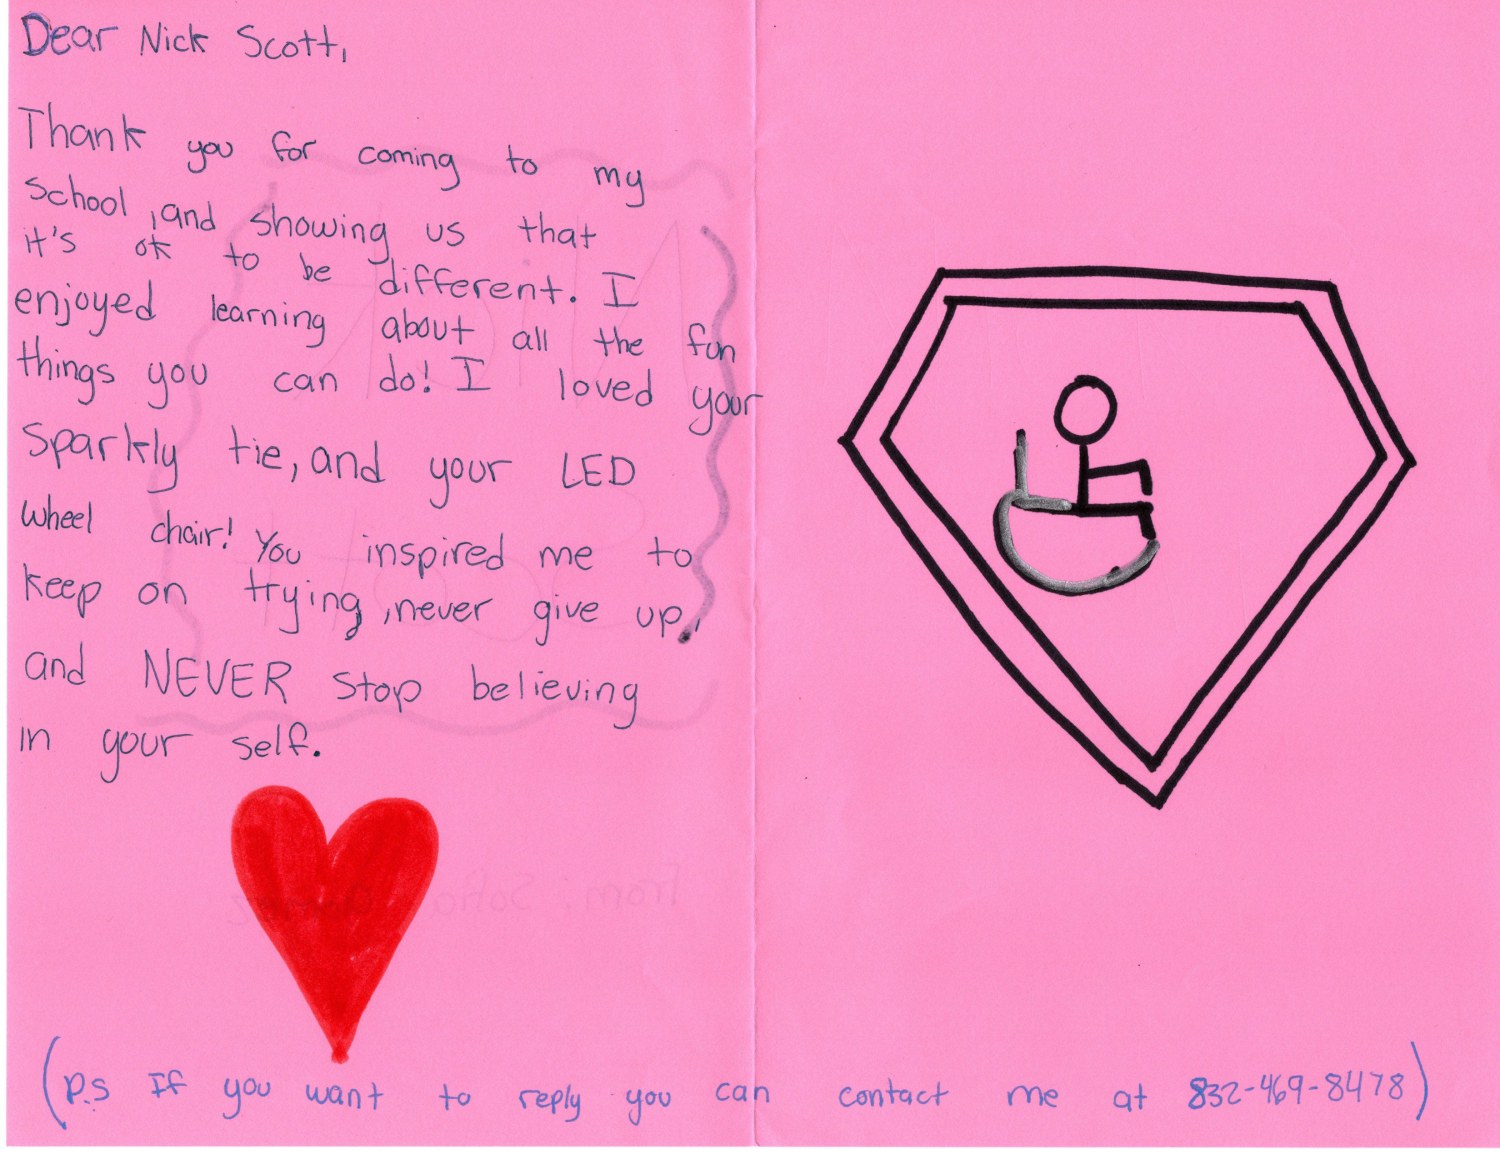 Dear Nick Scott,
Thank you for coming to my
school, and showing us that
it's ok to be different. I
enjoyed learning about all the fun
things you can do! I loved your
sparkly tie, and your LED
wheel chair! You inspired me to
keep on trying, never give up,
and NEVER stop believing
in your self.
Nick
Scott
From: Sofia
(P.S If you want to reply you can contact me at 832-469-8478)